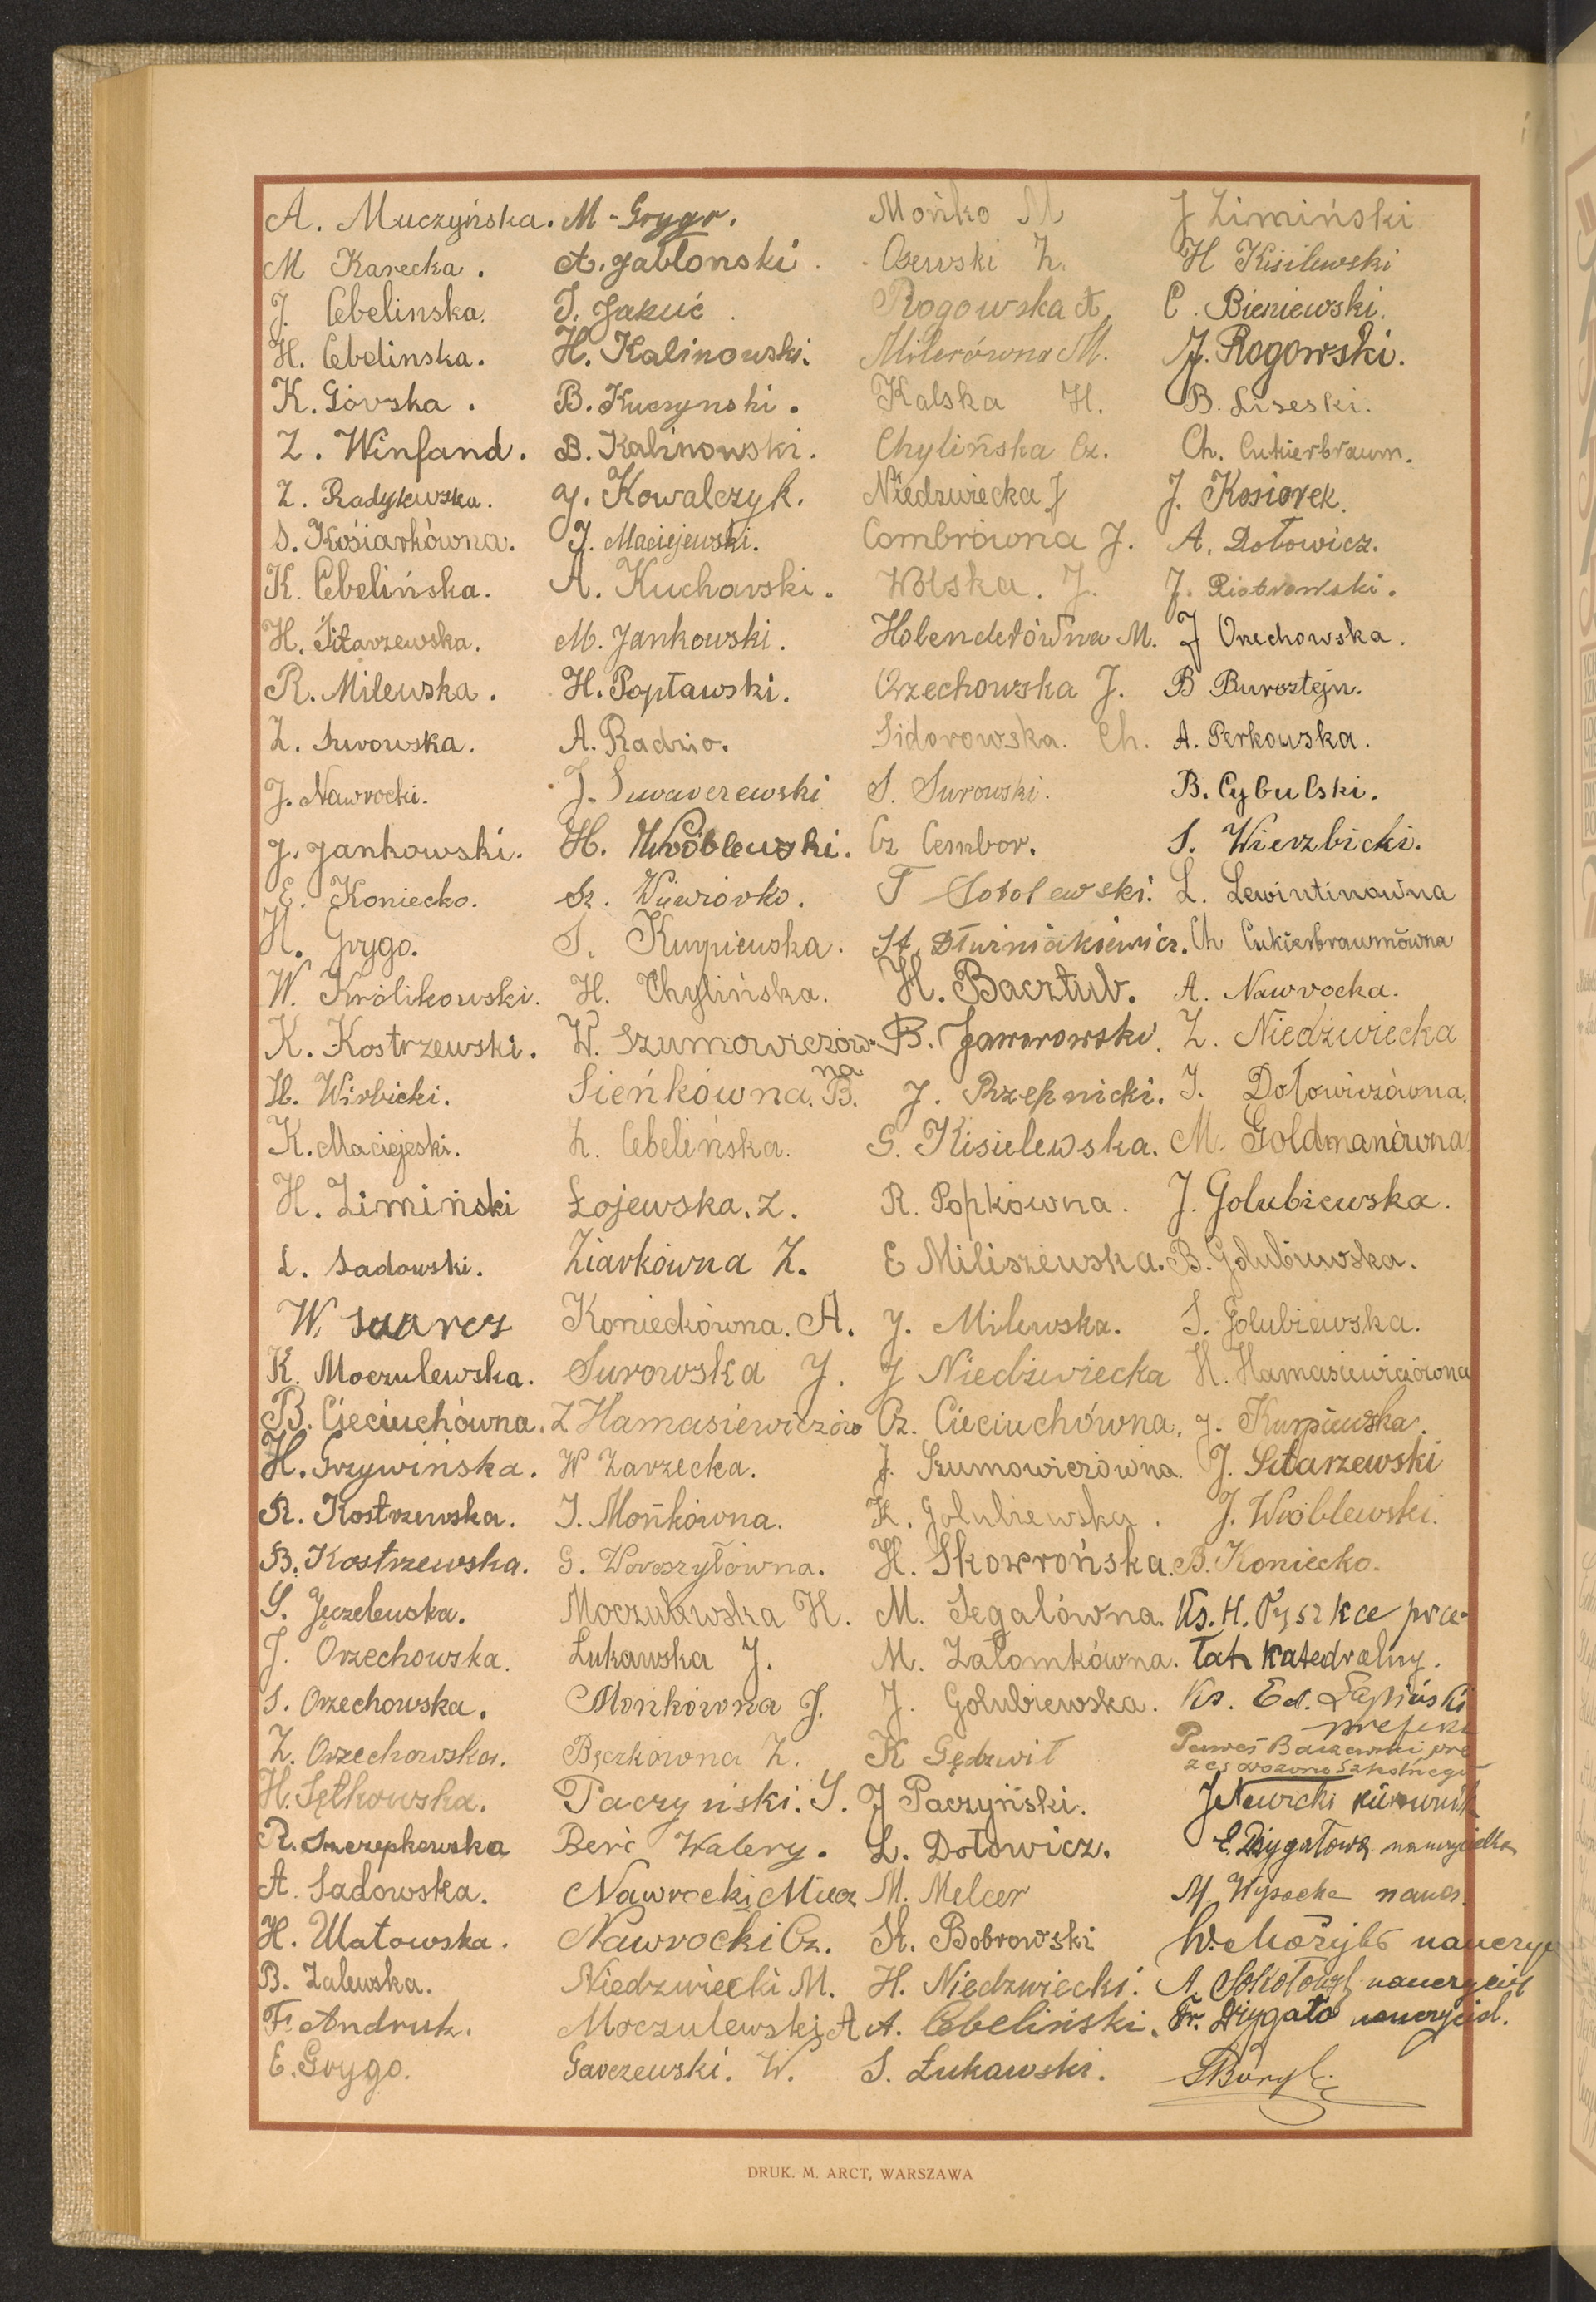 A. Muczyńska.
M Karecka.
J. Cebelinska.
H. Cebelinska.
K. Górska.
Z. Winfand.
Z. Radyjewska.
S. Kosiarkówna.
K. Cebelińska.
H. Sitarzewska.
R. Milewska.
Z. Surowska.
J. Nawrocki.
J. Jankowski.
E. Koniecko.
H. Grygo.
W. Królikowski.
K. Kostrzewski.
H. Wirbicki.
K. Maciejeski.
H. Zimiński
L. Sadowski.
W.
K. Moczulewska.
B. Cieciuchówna.
H. Grzywińska.
R. Kostrzewska.
B. Kostrzewska.
S. Jęczelewska.
J. Orzechowska.
S. Orzechowska.
Z. Orzechowska.
H. Sętkowska.
R. Szczepkowska
A. Sadowska.
H. Ułatowska.
B. Zalewska.
F. Andruk.
E. Grygo.
M - Grygo.
A. Jabłonski.
J. Jakuć.
H. Kalinowski.
B. Kuczynski.
B. Kalinowski.
J. Kowalczyk.
J. Maciejewski.
A. Kucharski.
M. Jankowski.
H. Popławski.
A. Radzio.
J. Swaverewski
H. Wróblewski.
Sz. Wiewiórko.
S. Kurpiewska.
H. Chylińska.
W. Szumowiczów-
na
Sieńkówna. B.
Z. Cebelińska.
Łojewska. Z.
Ziarkówna Z.
Konieckówna. A.
Surowska J.
Z Hamasiewiczów
W Zarzecka.
J. Mońkówna.
G. Woroszyłówna.
Moczulewska H.
Łukawska J.
Mońkówna J.
Bęczkowna Z.
Paczyński. S.
Berć Walery.
Nawrocki Miecz
Nawrocki Cz.
Niedzwiecki M.
Moczulewski A
Garczewski. W.
Mońko M
Osewski Z.
Rogowska A.
Milerówna M.
Kalska H.
Chylińska Cz.
Niedzwiecka J
Combrówna J.
Wolska. J.
Holenderówna M.
Orzechowska J.
Sidorowska. Ch.
S. Surowski.
Cz Cembor.
T Sobolewski.
St. Dłuźniakiewicz.
H. Bacztub.
B. Jaworowski.
J. Rzepnicki.
G. Kisielewska.
R. Popkówna.
E Miliszewska.
J. Milewska.
J Niedźwiecka
Cz. Cieciuchówna,
J. Szumowiczówna.
K. Golubiewska.
H. Skowrońska.
M. Segalówna.
M. Załomkówna.
J. Golubiewska.
K Gędzwił
J Paczyński.
L. Dołowicz.
M. Melcer
St. Bobrowski
H. Niedzwiecki.
A. Cebeliński.
S. Łukawski.
J Zimiński
H Kisilewski
C. Bieniewski.
J. Rogowski.
B. Liseski.
Ch. Cukierbraum.
J. Kosiorek.
A. Dołowicz.
J. Piotrowski.
J Orechowska.
B Bursztejn.
A. Perkowska.
B. Cybulski.
S. Wierzbicki.
L. Lewintinowna
Ch Cukierbraumówna
A. Nawrocka.
Z. Niedźwiecka
J. Dołowiczówna.
M. Goldmanówna
J. Golubiewska.
B. Golubiewska.
S. Golubiewska.
H. Hamasiewiczówna
J. Kurpiewska.
J. Sitarzewski
J. Wróblewski.
B. Koniecko.
Ks. H. Pyszkce pra-
łat Katedralny.
Ks. Ed. Łapiński
prefekt
Paweł pre
zes dozoro szkolnego
J Nawrcki kierownik
E. Drygałowa nauczycielka
M Wysocka naucz.
W. nauczyc
A. nauczyciel
Fr. Drygało nauczyciel.
DRUK. M. ARCT, WARSZAWA